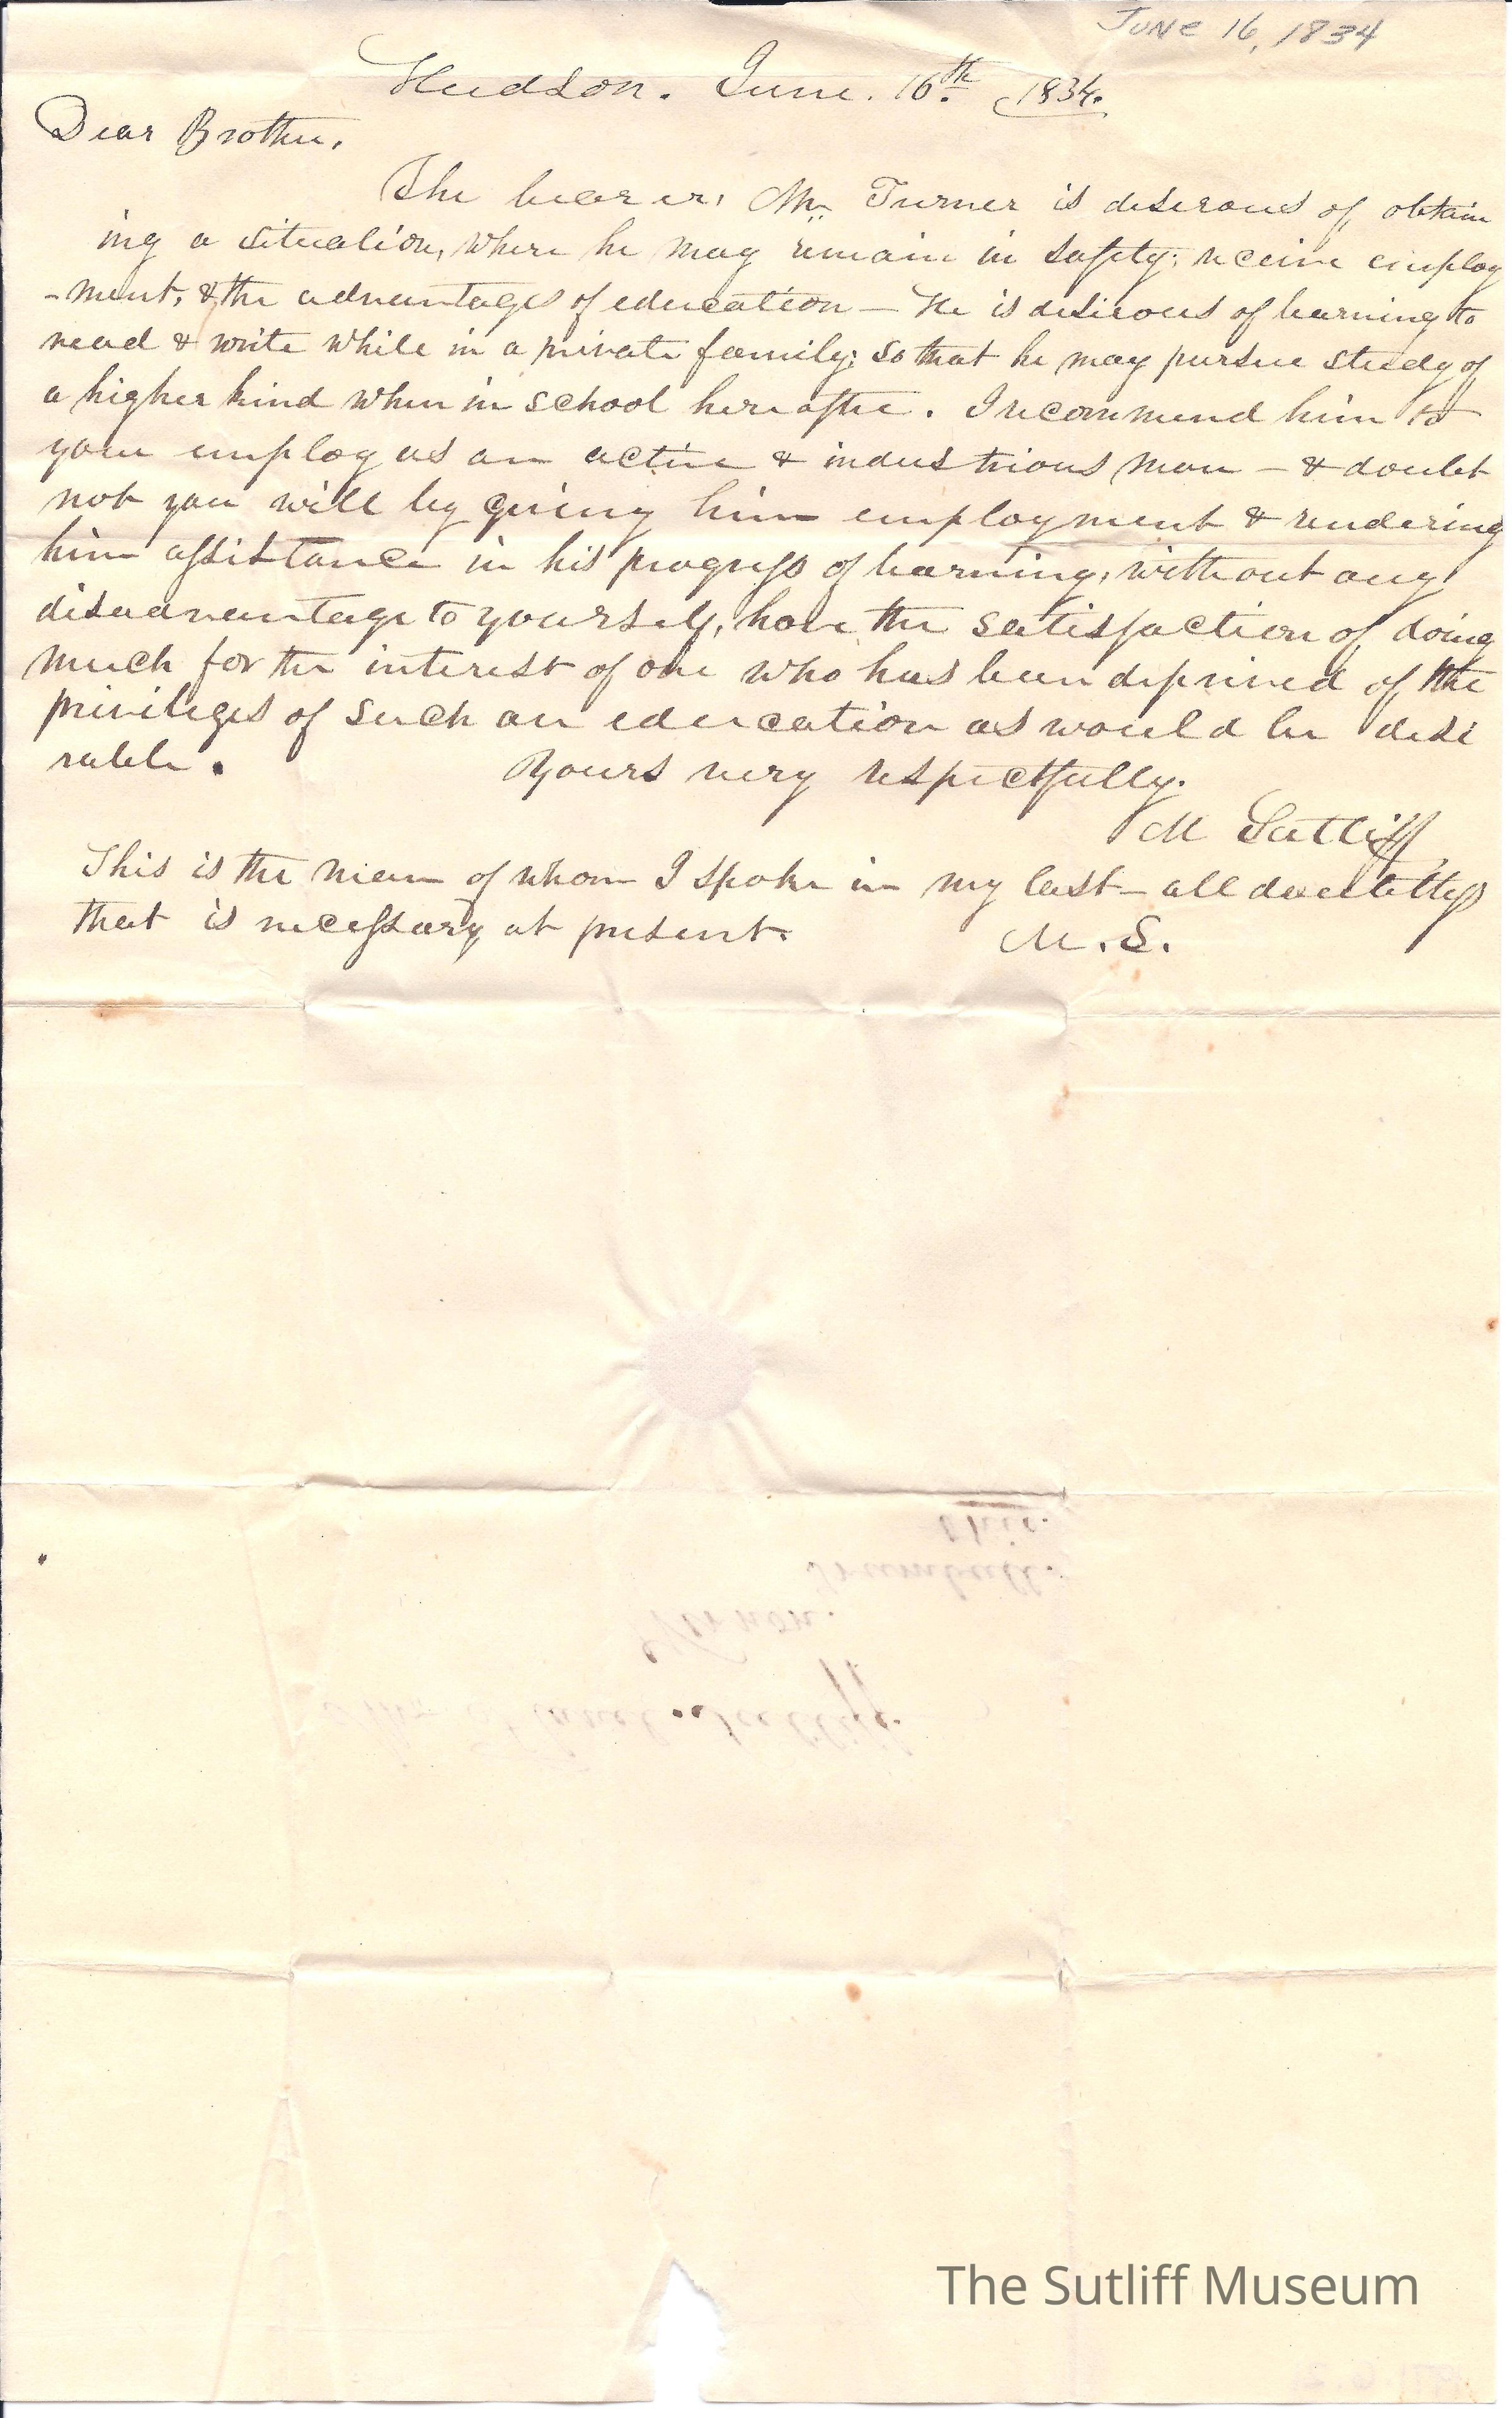 JUNE 16, 1834
Hudson. June. 16th. 1834.
Dear Brother,
The bearer, Mr. Turner is desirous of obtain
ing a situation, where he may remain in safety; receive employ
-ment, & the advantages of education — He is desirous of learning to
read & write while in a private family; so that he may pursue study of
a higher kind when in school hereafter. I recommend him to
your employ as an active & industrious man — & doubt
not you will by giving him employment & rendering
him assistance in his progress of learning, without any
disadvantage to yourself, have the satisfaction of doing
much for the interest of one who has been deprived of the
privileges of such an education as would be desi
rable.
Yours very respectfully.
M Sutliff
This is the man of whom I spoke in my last — all doubtless
that is necessary at present.
M. S.
Ohio.
Trumbull.
Vernon.
Sutliff.
The Sutliff Museum